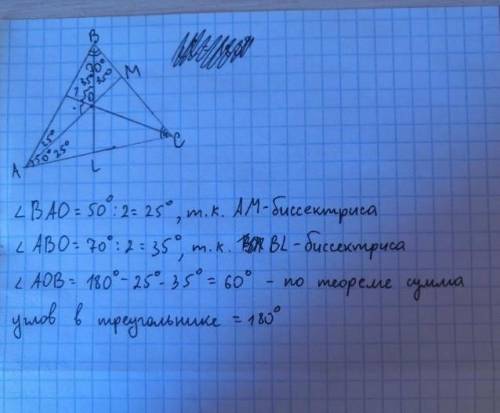 B
70°
35° 35°
?
M
50
25°
A
50° 25°
L
C
∠BAO = 50° : 2 = 25°, т.к. AM-биссектриса
∠ABO = 70° : 2 = 35°, т.к. BL-биссектриса
∠AOB = 180° - 25° - 35° = 60° - по теореме сумма
углов в треугольнике = 180°